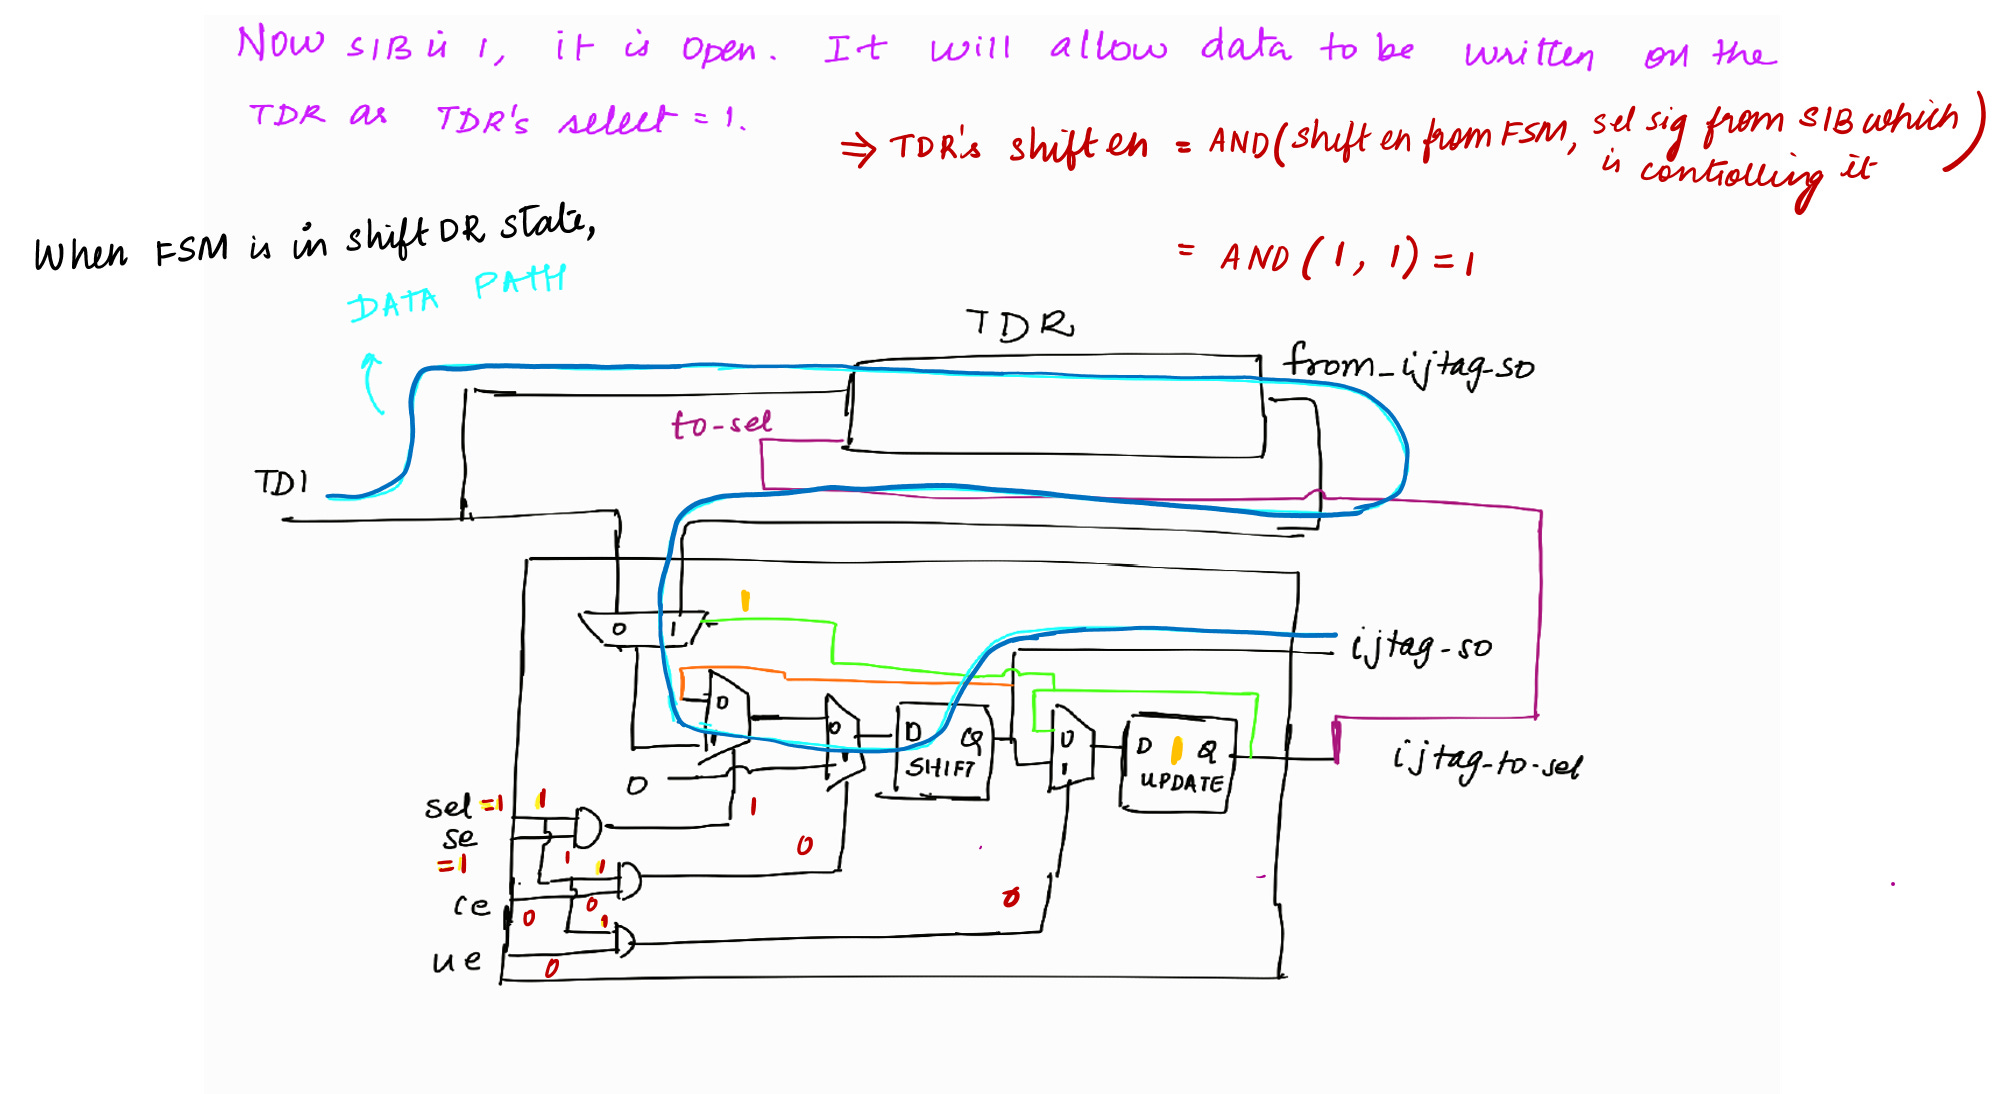 Now SIB is 1, it is open. It will allow data to be written on the
TDR as TDR's select = 1.
⇒ TDR's shift en = AND(shift en from FSM, sel sig from SIB which
is controlling it)
= AND(1, 1) = 1
When FSM is in shift DR state,
DATA PATH
TDR
from_ijtag_so
to-sel
TDI
1
0 1
ijtag-so
0
1
0
1
D Q
SHIFT
0
1
D 1 Q
UPDATE
ijtag-to-sel
0
sel =1 1
se
=1
1
1
1
0
ce
0
0
1
0
ue
0